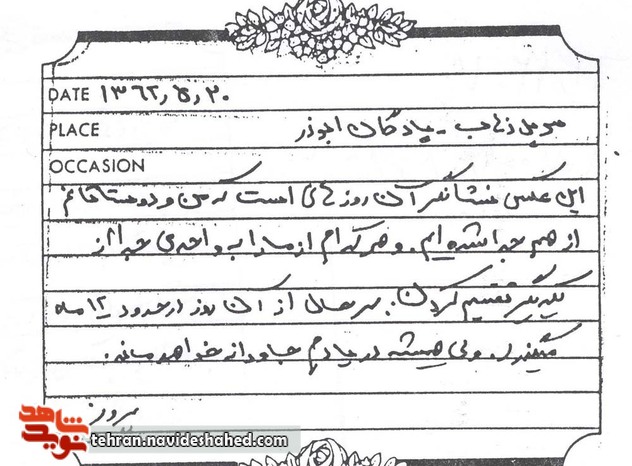 DATE ۱۳۶۲/۵/۲۰
PLACE سرپل ذهاب - پادگان ابوذر
OCCASION
این عکس نشانگر آن روزهای است که من و دوستانم
از هم جدا شده ایم. و هر کدام از ما را به واحدی جدا از
یکدیگر تقسیم کردن. بهر حال از آن روز در حدود ۱۲ ماه
میگذرد. ولی همیشه در یادم جاودانه خواهد ماند.
بهروز
شاهد
نوید
tehran.navideshahed.com